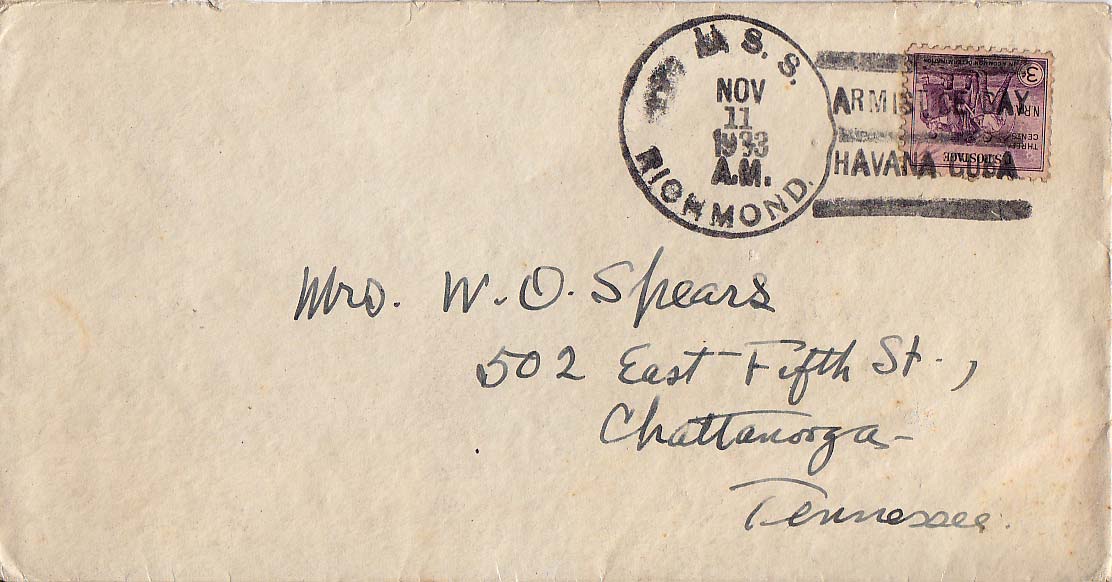 U.S.S.
NOV
11
1933
A.M.
RICHMOND.
ARMISTICE DAY
HAVANA CUBA
3¢
IN A COMMON DETERMINATION
N.R.A.
THREE
CENTS
U.S. POSTAGE
Mrs. W. O. Spears
502 East Fifth St.,
Chattanooga
Tennessee.